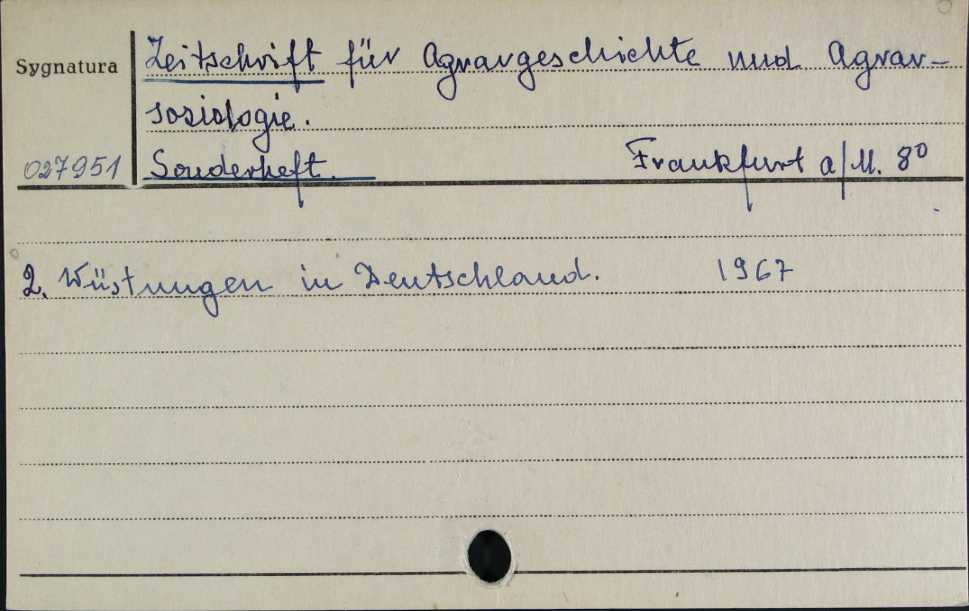 Sygnatura Zeitschrift für Agrargeschichte und Agrar-
soziologie.
027951 Sonderheft. Frankfurt a/M. 8⁰
2. Wüstungen in Deutschland. 1967